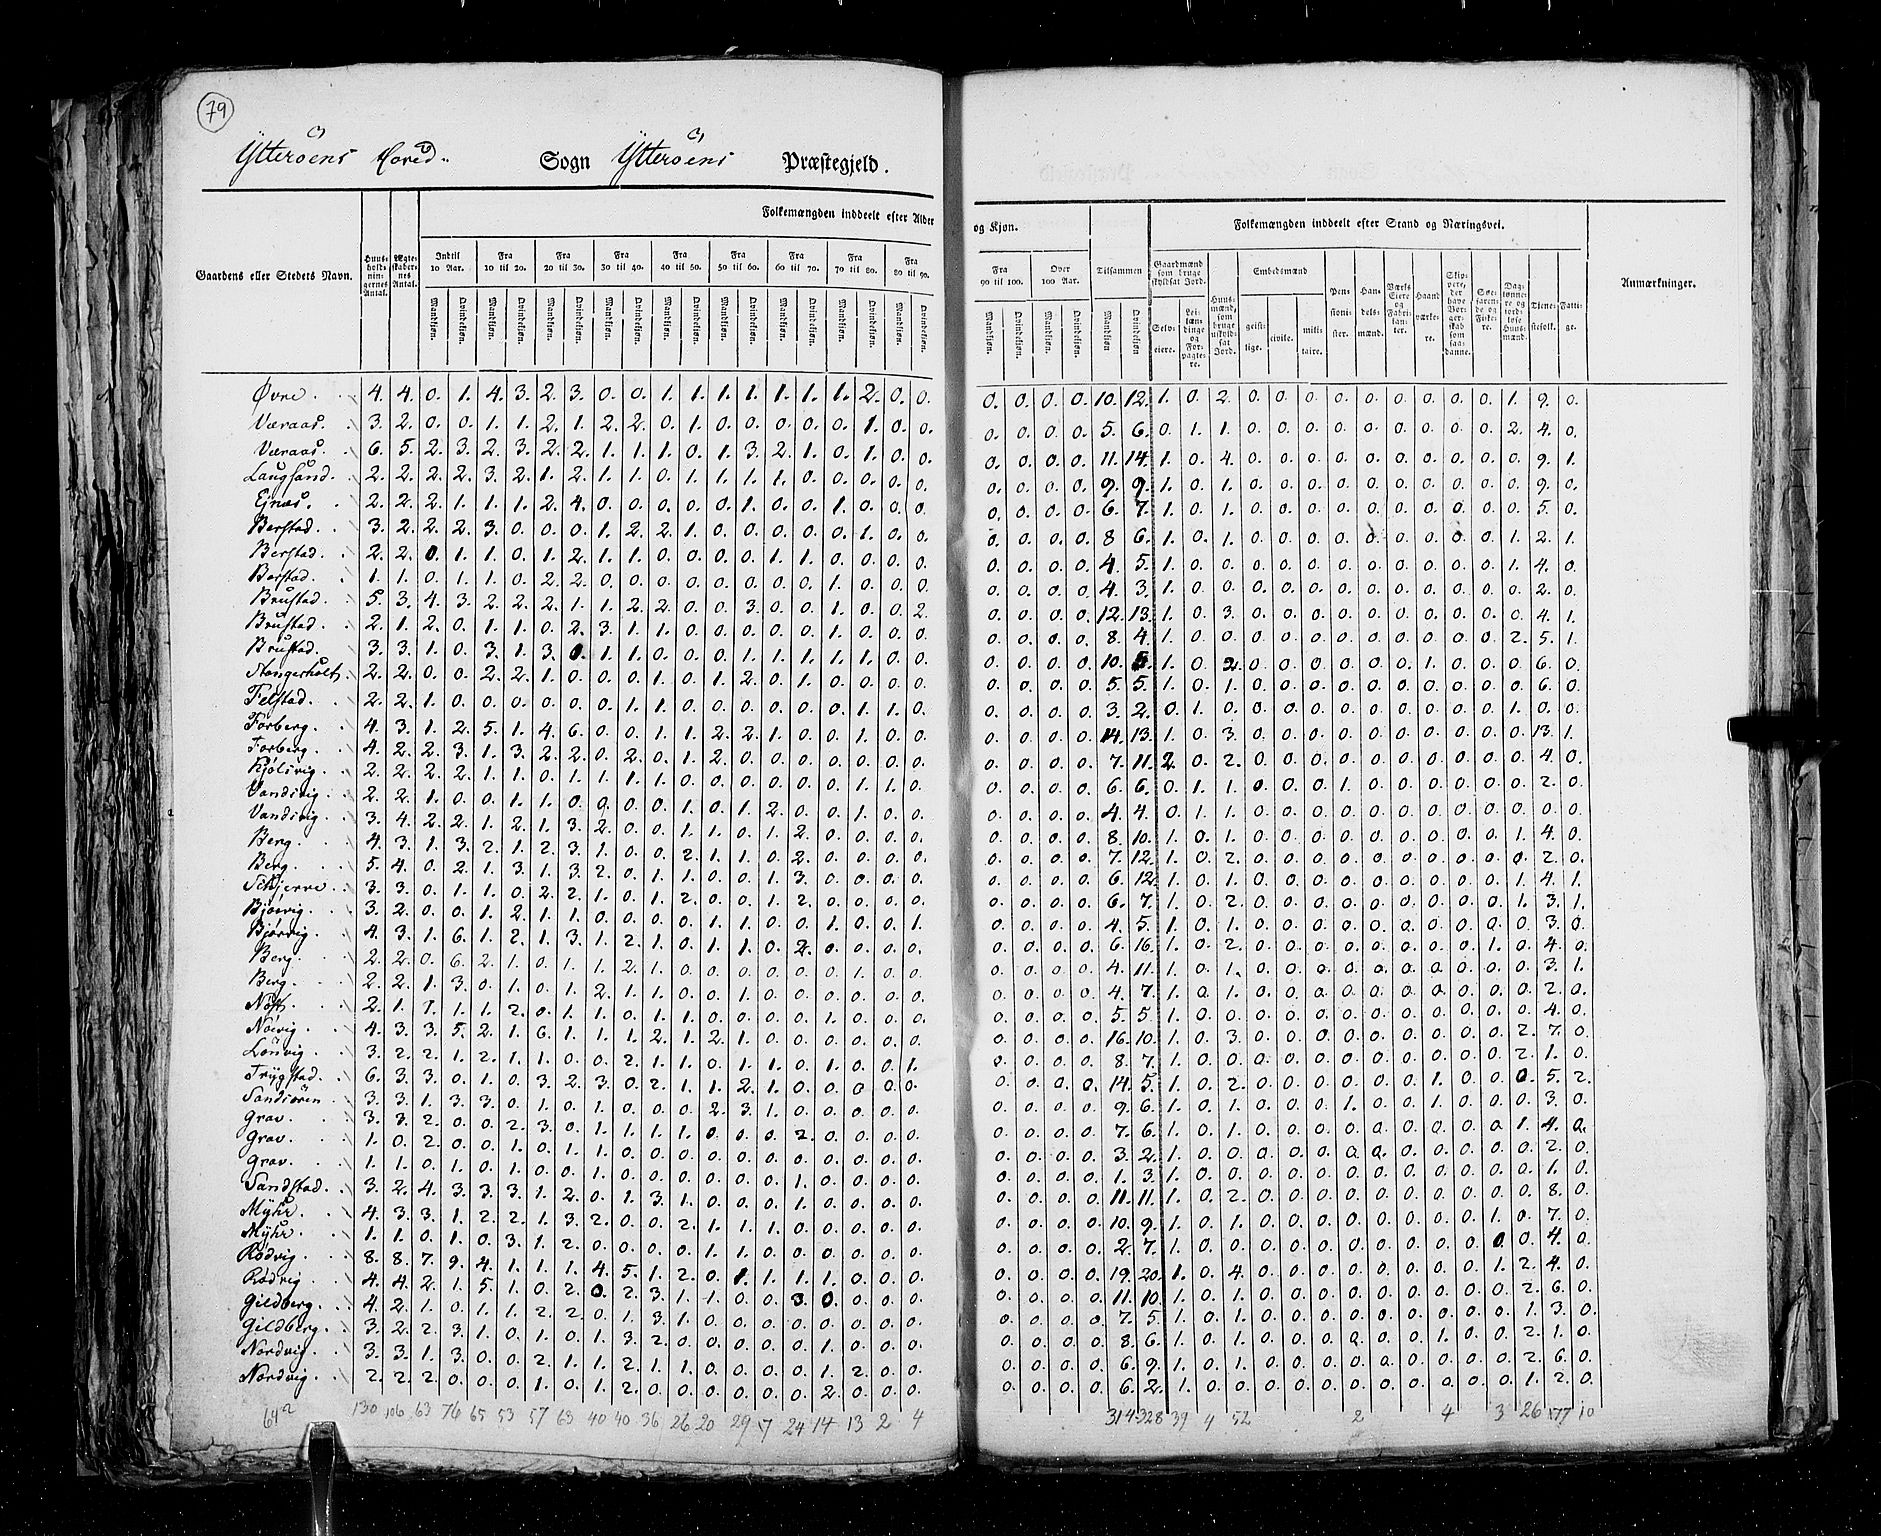 79
Ytterøens Hoved- Sogn Ytterøens Præstegjeld.
Gaardens eller Stedets Navn.
Huusholdningernes Antal.
Ægteskabernes Antal.
Folkemængden inddeelt efter Alder og Kjøn.
Indtil 10 Aar.
Fra 10 til 20.
Fra 20 til 30.
Fra 30 til 40.
Fra 40 til 50.
Fra 50 til 60.
Fra 60 til 70.
Fra 70 til 80.
Fra 80 til 90.
Fra 90 til 100.
Over 100 Aar.
Tilsammen
Mandkjøn. Qvindekjøn.
Folkemængden inddeelt efter Stand og Næringsvei.
Gaardmænd som bruge skyldsat Jord.
Selveiere.
Leilændinge og Forpagtere.
Huusmænd, som bruge uskyldsat Jord.
Embedsmænd
geistlige.
civile.
militaire.
Pensionister.
Handelsmænd.
Værks Eiere og Fabrikanter.
Haandværkere.
Skippere, der have Borgerskab som saadanne.
Søefarende og Fiskere.
Daglønnere og jordløse Huusmænd.
Tjenestefolk.
Fattige.
Anmærkninger.
Øvre. 4. 4. 0. 1. 4. 3. 2. 3. 0. 0. 1. 1. 1. 1. 1. 1. 1. 2. 0. 0. 0. 0. 0. 0. 10. 12. 1. 0. 2. 0. 0. 0. 0. 0. 0. 0. 0. 0. 1. 9. 0.
Væraas. 3. 2. 0. 0. 1. 1. 2. 1. 2. 2. 0. 1. 0. 0. 0. 0. 0. 1. 0. 0. 0. 0. 0. 0. 5. 6. 0. 1. 1. 0. 0. 0. 0. 0. 0. 0. 0. 0. 2. 4. 0.
Væraas. 6. 5. 2. 3. 2. 3. 2. 2. 1. 1. 1. 0. 1. 3. 2. 1. 0. 1. 0. 0. 0. 0. 0. 0. 11. 14. 1. 0. 4. 0. 0. 0. 0. 0. 0. 0. 0. 0. 0. 9. 1.
Laugsand. 2. 2. 2. 2. 3. 2. 1. 2. 1. 1. 0. 1. 1. 1. 1. 0. 0. 0. 0. 0. 0. 0. 0. 0. 9. 9. 1. 0. 1. 0. 0. 0. 0. 0. 0. 0. 0. 0. 0. 9. 0.
Ejnæs. 2. 2. 2. 1. 1. 1. 2. 4. 0. 0. 0. 0. 0. 1. 0. 0. 1. 0. 0. 0. 0. 0. 0. 0. 6. 7. 1. 0. 1. 0. 0. 0. 0. 0. 0. 0. 0. 0. 0. 5. 0.
Berstad. 3. 2. 2. 2. 3. 0. 0. 0. 1. 2. 2. 1. 0. 0. 0. 0. 0. 1. 0. 0. 0. 0. 0. 0. 8 6. 1. 0. 1. 0. 0. 0. 0. 0. 0. 0. 0. 0. 1. 2. 1.
Berstad. 2. 2. 0. 1. 1. 0. 1. 2. 1. 1. 0. 0. 0. 0. 1. 1. 0. 0. 0. 0. 0. 0. 0. 0. 4. 5. 1. 0. 0. 0. 0. 0. 0. 0. 0. 0. 0. 0. 1. 4. 0.
Berstad. 1. 1. 0. 1. 1. 0. 2. 2. 0. 0. 0. 0. 0. 0. 0. 0. 1. 0. 0. 0. 0. 0. 0. 0. 4. 3. 1. 0. 0. 0. 0. 0. 0. 0. 0. 0. 0. 0. 0. 2. 0.
Brustad. 5. 3. 4. 3. 2. 2. 2. 1. 1. 2. 2. 0. 0. 3. 0. 0. 1. 0. 0. 2. 0. 0. 0. 0. 12. 13. 1. 0. 3. 0. 0. 0. 0. 0. 0. 0. 0. 0. 0. 4. 1.
Brustad. 2. 1. 2. 0. 1. 1. 0. 2. 3. 1. 1. 0. 0. 0. 0. 0. 1. 0. 0. 0. 0. 0. 0. 0. 8. 4. 1. 0. 0. 0. 0. 0. 0. 0. 0. 0. 0. 0. 2. 5. 1.
Brustad. 3. 3. 1. 0. 3. 1. 3. 0. 1. 1. 0. 0. 0. 1. 1. 1. 1. 1. 0. 0. 0. 0. 0. 0. 10. 5. 1. 0. 2. 0. 0. 0. 0. 0. 0. 1. 0. 0. 0. 6. 0.
Stangerholt. 2. 2. 0. 0. 2. 2. 1. 0. 0. 0. 1. 0. 1. 2. 0. 1. 0. 0. 0. 0. 0. 0. 0. 0. 5. 5. 1. 0. 1. 0. 0. 0. 0. 0. 0. 0. 0. 0. 0. 6. 0.
Felstad. 2. 2. 1. 0. 0. 0. 0. 0. 0. 1. 1. 0. 0. 0. 0. 0. 0. 1. 1. 0. 0. 0. 0. 0. 3. 2. 0. 1. 0. 0. 0. 0. 0. 0. 0. 0. 0. 0. 1. 0. 0.
Forberg. 4. 3. 1. 2. 5. 1. 4. 6. 0. 0. 1. 1. 2. 2. 1. 0. 0. 1. 0. 0. 0. 0. 0. 0. 14. 13. 1. 0. 3. 0. 0. 0. 0. 0. 0. 0. 0. 0. 0. 13. 1.
Forberg. 4. 2. 2. 3. 1. 3. 2. 2. 0. 2. 0. 1. 2. 0. 0. 0. 0. 0. 0. 0. 0. 0. 0. 0. 7. 11. 2. 0. 2. 0. 0. 0. 0. 0. 0. 0. 0. 0. 0. 4. 0.
Kjølsvig. 2. 2. 2. 2. 1. 1. 0. 1. 1. 1. 1. 0. 0. 0. 0. 0. 0. 1. 1. 0. 0. 0. 0. 0. 6. 6. 0. 1. 1. 0. 0. 0. 1. 0. 0. 0. 0. 0. 0. 2. 0.
Vandsvig. 2. 2. 1. 0. 0. 1. 1. 0. 0. 0. 0. 1. 0. 1. 2. 0. 0. 1. 0. 0. 0. 0. 0. 0. 4. 4. 0. 1. 1. 0. 0. 0. 0. 0. 0. 0. 0. 0. 0. 0. 0.
Vandsvig. 3. 4. 2. 2. 1. 2. 1. 3. 2. 0. 0. 1. 1. 0. 1. 2. 0. 0. 0. 0. 0. 0. 0. 0. 8. 10. 1. 0. 1. 0. 0. 0. 0. 0. 0. 0. 0. 0. 1. 4. 0.
Berg. 4. 3. 1. 3. 2. 1. 2. 3. 1. 0. 0. 2. 1. 1. 0. 2. 0. 0. 0. 0. 0. 0. 0. 0. 7. 12. 1. 0. 2. 0. 0. 0. 0. 0. 0. 0. 0. 0. 0. 2. 0.
Berg. 5. 4. 0. 2. 1. 3. 1. 3. 2. 0. 1. 1. 0. 0. 1. 3. 0. 0. 0. 0. 0. 0. 0. 0. 6. 12. 1. 0. 1. 0. 0. 0. 0. 0. 0. 0. 0. 0. 1. 4. 1.
Schjerve. 3. 3. 0. 1. 1. 0. 2. 2. 1. 0. 1. 2. 0. 0. 1. 2. 0. 0. 0. 0. 0. 0. 0. 0. 6. 7. 1. 0. 2. 0. 0. 0. 0. 0. 0. 0. 0. 0. 1. 3. 1.
Bjørvig. 3. 2. 0. 0. 1. 2. 1. 1. 0. 0. 0. 0. 1. 1. 0. 0. 1. 0. 0. 1. 0. 0. 0. 0. 4. 5. 1. 0. 1. 0. 0. 0. 0. 0. 0. 0. 0. 0. 0. 3. 0.
Bjørvig. 4. 3. 1. 6. 1. 2. 1. 3. 1. 2. 1. 0. 1. 1. 0. 2. 0. 0. 0. 0. 0. 0. 0. 0. 6. 16. 1. 0. 2. 0. 0. 0. 0. 0. 0. 0. 0. 1. 0. 4. 0.
Berg. 2. 2. 0. 6. 2. 1. 0. 1. 1. 2. 1. 0. 0. 0. 0. 0. 0. 1. 0. 0. 0. 0. 0. 0. 4. 11. 1. 0. 1. 0. 0. 0. 0. 0. 0. 0. 0. 0. 0. 3. 1.
Berg. 2. 2. 1. 3. 0. 1. 0. 1. 2. 1. 1. 0. 0. 1. 0. 0. 0. 0. 0. 0. 0. 0. 0. 0. 4. 7. 1. 0. 1. 0. 0. 0. 0. 0. 0. 0. 0. 0. 0. 2. 0.
2. 1. 1. 1. 1. 2. 0. 1. 1. 0. 1. 1. 0. 0. 0. 0. 1. 0. 0. 0. 0. 0. 0. 0. 5. 5. 1. 0. 0. 0. 0. 0. 0. 0. 0. 0. 0. 0. 0. 4. 0.
4. 3. 3. 5. 2. 1. 6. 1. 1. 1. 2. 1. 2. 1. 0. 0. 0. 0. 0. 0. 0. 0. 0. 0. 16. 10. 1. 0. 3. 0. 0. 0. 0. 0. 0. 0. 0. 0. 2. 7. 0.
Lonvig. 3. 2. 2. 1. 2. 1. 1. 0. 0. 2. 1. 1. 0. 1. 1. 0. 1. 0. 0. 1. 0. 0. 0. 0. 8. 7. 1. 0. 0. 0. 0. 0. 0. 0. 0. 0. 0. 0. 2. 1. 0.
Trygstad. 6. 3. 3. 0. 1. 0. 3. 2. 3. 0. 2. 1. 1. 2. 1. 0. 0. 0. 0. 0. 0. 0. 0. 0. 14. 5. 1. 0. 2. 0. 0. 0. 0. 0. 0. 1. 0. 0. 0. 5. 2.
Sandsøren 3. 3. 1. 3. 3. 0. 1. 0. 1. 0. 0. 0. 2. 3. 1. 0. 0. 0. 0. 0. 0. 0. 0. 0. 9. 6. 1. 0. 1. 0. 0. 0. 1. 0. 0. 1. 0. 0. 0. 3. 0.
Grav. 3. 3. 2. 0. 0. 2. 3. 0. 1. 1. 1. 1. 0. 0. 0. 2. 0. 0. 0. 0. 0. 0. 0. 0. 7. 6. 1. 0. 1. 0. 0. 0. 0. 0. 0. 0. 0. 0. 1. 4. 0.
Grav. 1. 0. 2. 0. 0. 1. 0. 1. 1. 0. 0. 0. 0. 0. 0. 0. 0. 0. 0. 0. 0. 0. 0. 0. 3. 2. 1. 0. 0. 0. 0. 0. 0. 0. 0. 0. 0. 0. 0. 2. 0.
Grav. 1. 1. 0. 1. 0. 1. 0. 0. 1. 0. 0. 0. 0. 0. 0. 1. 0. 0. 0. 0. 0. 0. 0. 0. 1. 3. 1. 0. 0. 0. 0. 0. 0. 0. 0. 0. 0. 0. 0. 1. 0.
Sandstad. 3. 2. 4. 3. 3. 3. 1. 2. 0. 1. 3. 1. 0. 0. 0. 1. 0. 0. 0. 0. 0. 0. 0. 0. 11. 11. 1. 0. 2. 0. 0. 0. 0. 0. 0. 0. 0. 0. 0. 8. 0.
Myhr. 4. 3. 3. 1. 2. 2. 1. 3. 2. 0. 0. 2. 1. 1. 1. 0. 0. 0. 0. 0. 0. 0. 0. 0. 10. 9. 1. 0. 1. 0. 0. 0. 0. 0. 0. 0. 0. 1. 0. 7. 0.
Myhr. 1. 1. 0. 1. 0. 3. 1. 2. 0. 0. 0. 0. 1. 1. 0. 0. 0. 0. 0. 0. 0. 0. 0. 0. 2. 7. 1. 0. 0. 0. 0. 0. 0. 0. 0. 0. 0. 0. 0. 4. 0.
Rødvig. 8. 8. 7. 9. 4. 1. 1. 1. 4. 5. 1. 2. 0. 1. 1. 1. 1. 0. 0. 0. 0. 0. 0. 0. 19. 20. 1. 0. 4. 0. 0. 0. 0. 0. 0. 0. 0. 1. 2. 4. 0.
Rødvig. 4. 4. 2. 1. 5. 1. 0. 2. 0. 2. 3. 1. 1. 0. 0. 3. 0. 0. 0. 0. 0. 0. 0. 0. 11. 10. 1. 0. 1. 0. 0. 0. 0. 0. 0. 0. 0. 0. 2. 6. 0.
Gildberg. 4. 2. 1. 0. 1. 1. 2. 2. 0. 1. 3. 1. 0. 0. 0. 0. 0. 0. 0. 0. 0. 0. 0. 0. 7. 5. 1. 0. 1. 0. 0. 0. 0. 0. 0. 0. 0. 0. 1. 3. 0.
Gildberg. 3. 2. 2. 3. 1. 0. 1. 0. 1. 3. 2. 0. 0. 0. 0. 0. 1. 0. 0. 0. 0. 0. 0. 0. 8. 6. 1. 0. 1. 0. 0. 0. 0. 0. 0. 1. 0. 0. 2. 1. 0.
Nordvig. 3. 3. 1. 3. 0. 0. 2. 1. 1. 2. 1. 1. 0. 0. 0. 0. 1. 2. 0. 0. 0. 0. 0. 0. 6. 9. 1. 0. 1. 0. 0. 0. 0. 0. 0. 0. 0. 0. 2. 6. 0.
Nordvig. 2. 2. 2. 0. 0. 0. 1. 0. 1. 2. 0. 0. 0. 0. 0. 0. 2. 0. 0. 0. 0. 0. 0. 0. 6. 2. 1. 0. 0. 0. 0. 0. 0. 0. 0. 0. 0. 0. 1. 2. 0.
130 106 63 76 65 53 57 63 40 40 36 26 20 29 17 24 14 13 2 4 314 328 39 4 52 2 4 3 26 177 10